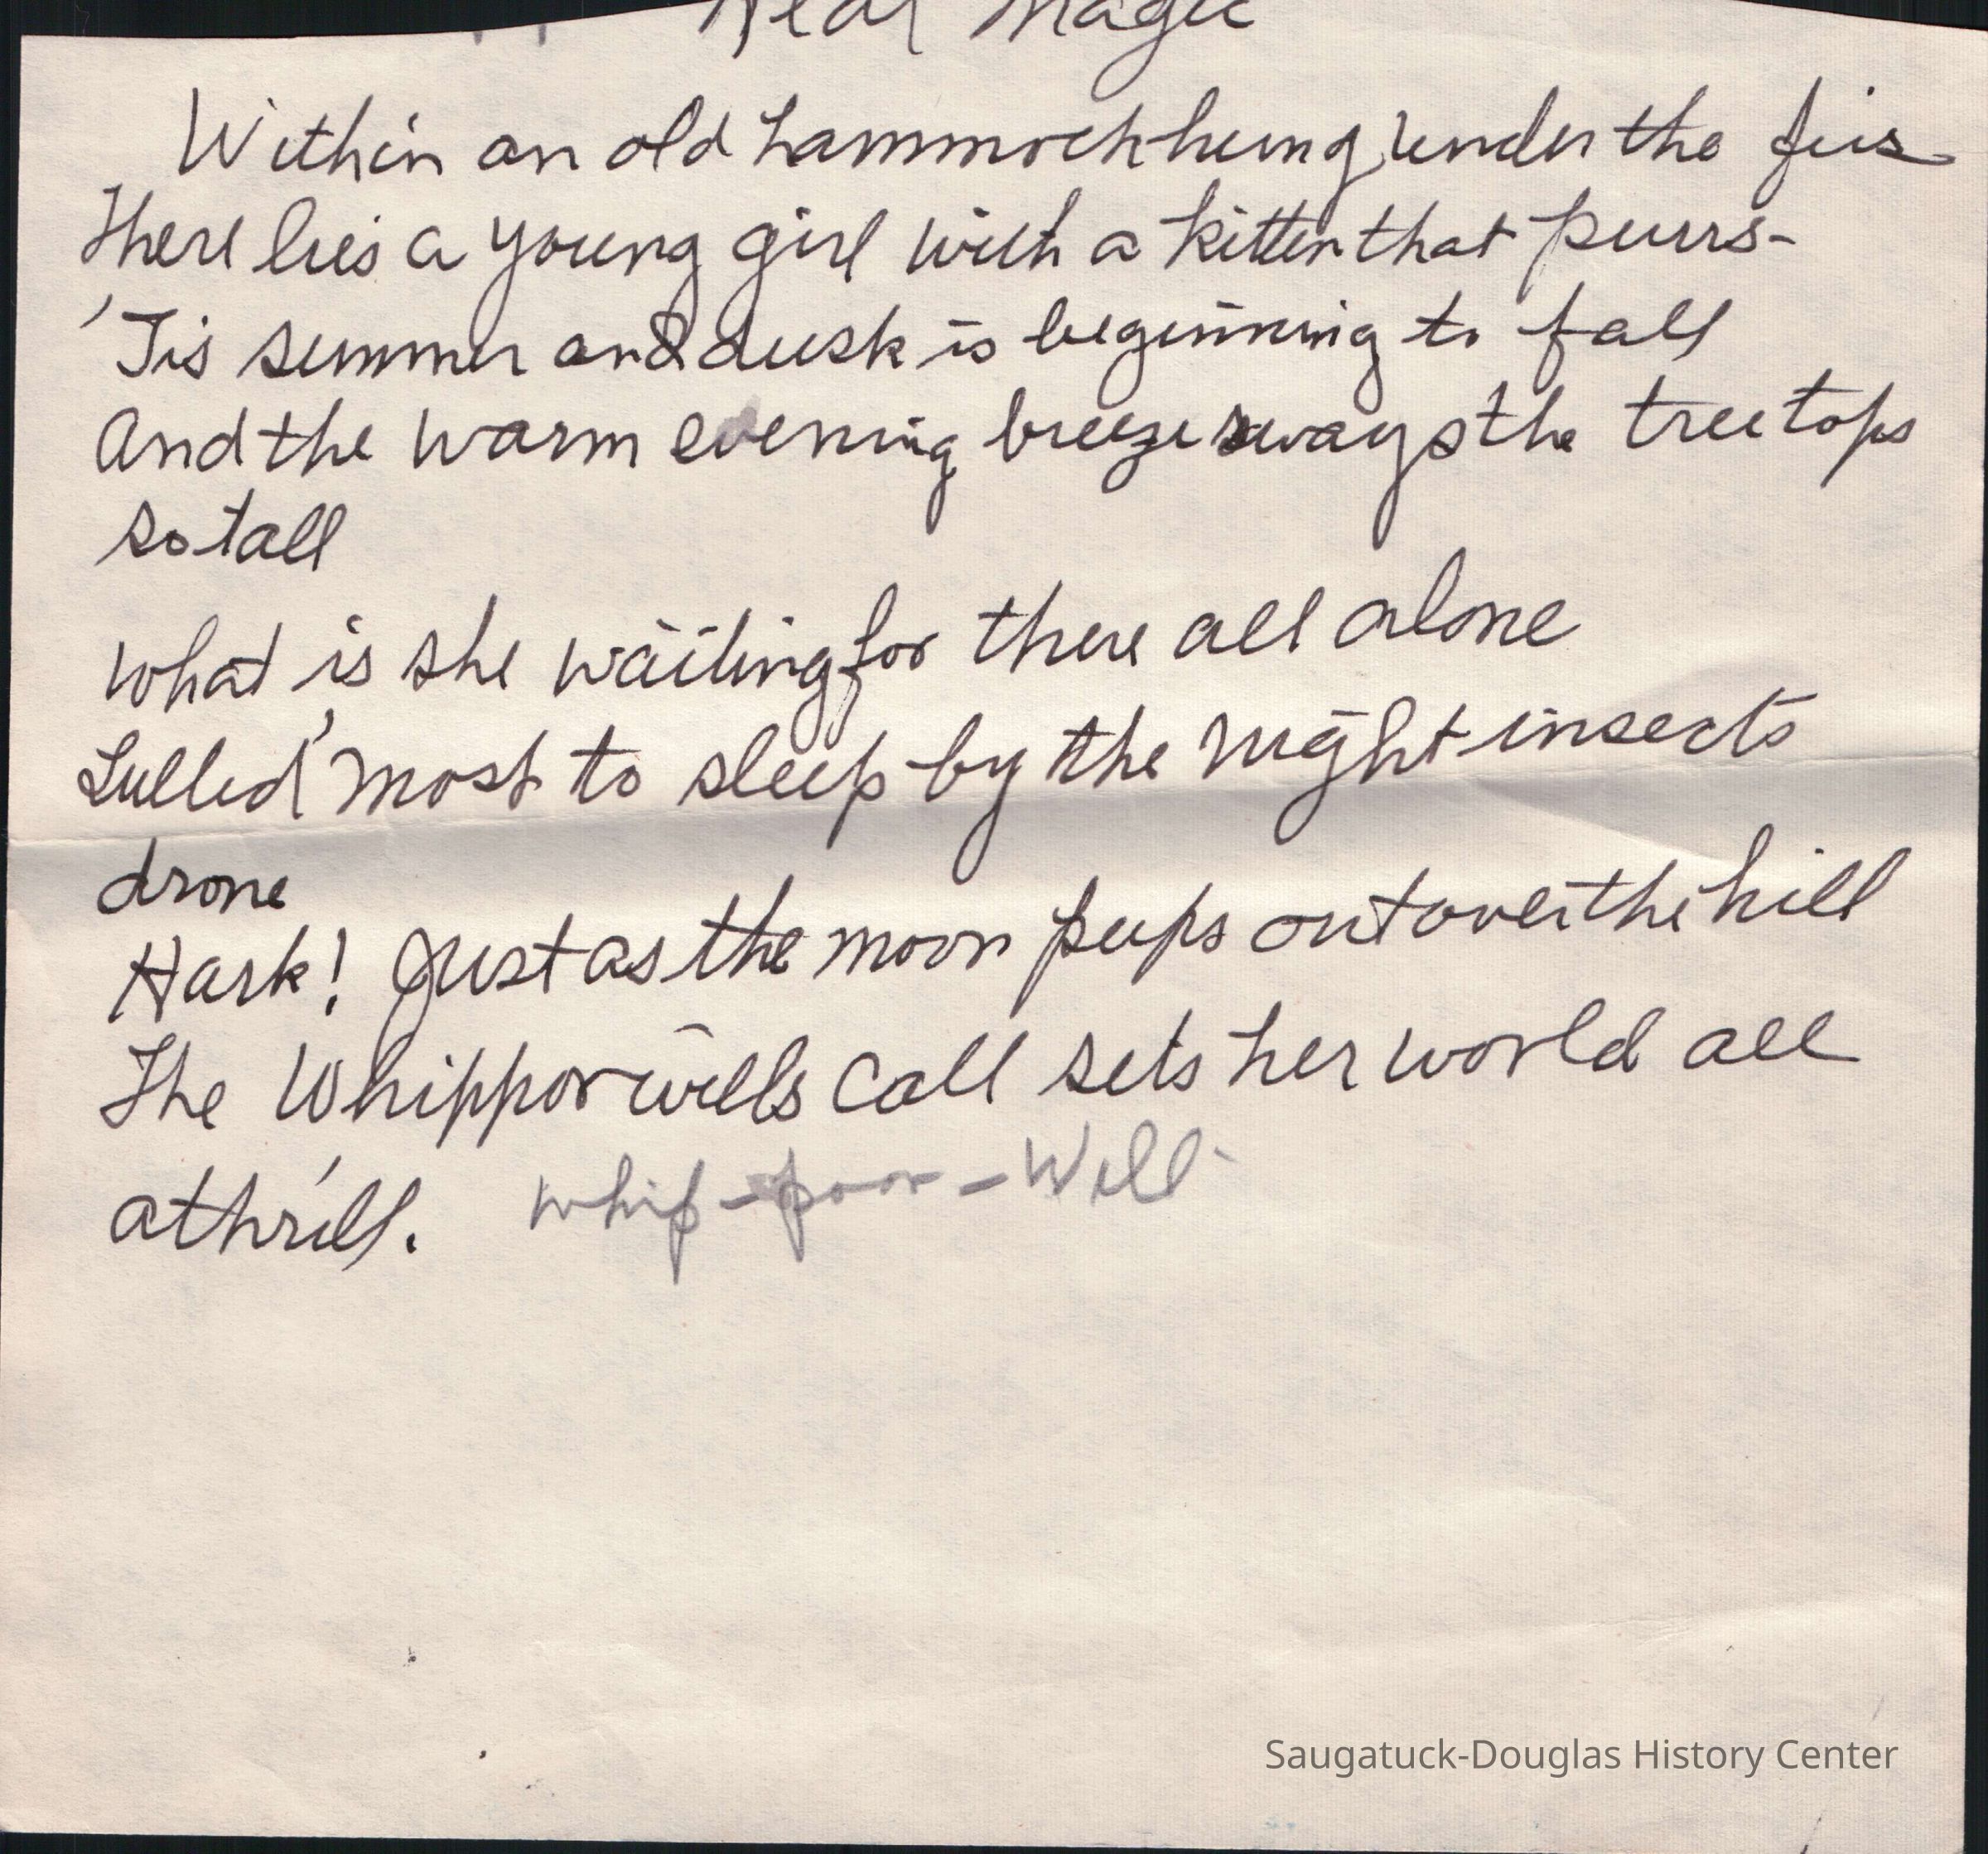 Real Magic
Within an old hammock hung under the firs
There lies a young girl with a kitten that purrs-
'Tis summer and dusk is beginning to fall
And the warm evening breeze sways the tree tops
so tall
What is she waiting for there all alone
Lulled 'most to sleep by the night insects
drone
Hark! Just as the moon peeps out over the hill
The Whipporwills call sets her world all
athrill. Whip-poor-Will-
Saugatuck-Douglas History Center